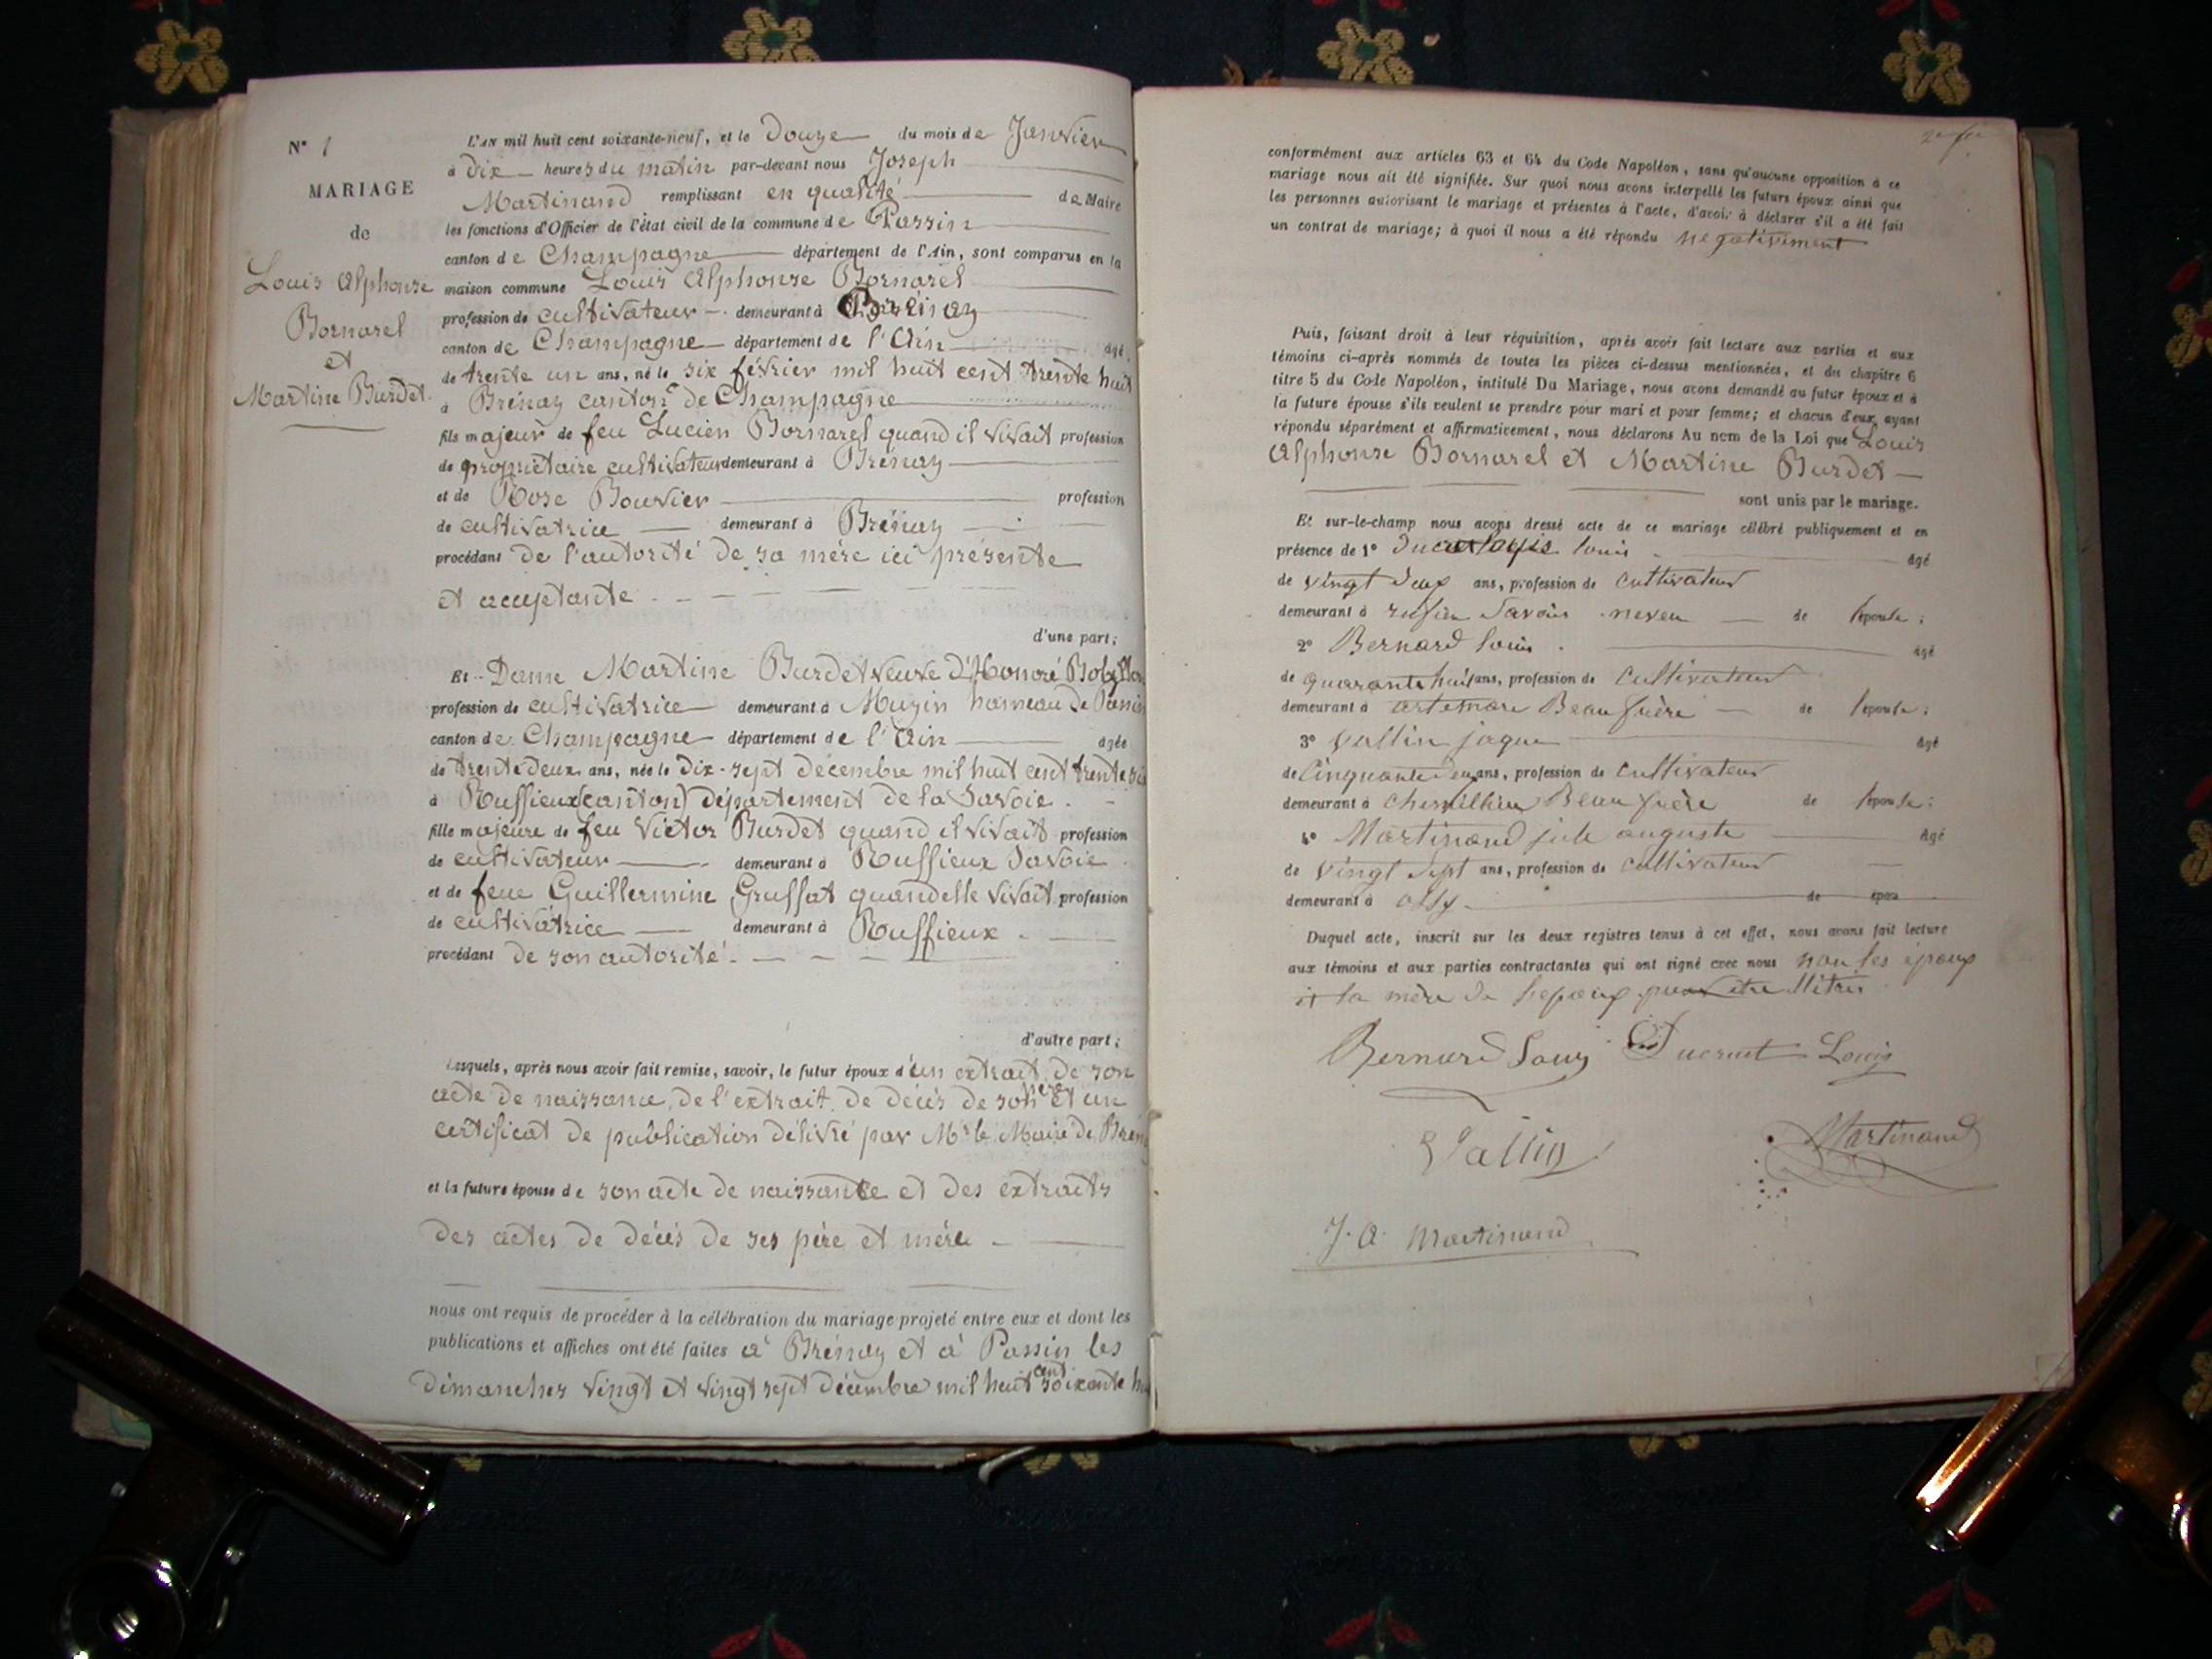 N° 1
MARIAGE
de
Louis Alphonse
Bornarel
et
Martine Burdet.
L'AN mil huit cent soixante-neuf, et le Douze du mois de Janvier
à dix heures du matin par-devant nous Joseph
Martinand remplissant en qualité de Maire
les fonctions d'Officier de l'état civil de la commune de Passin
canton de Champagne département de l'Ain, sont comparus en la
maison commune Louis Alphonse Bornarel
profession de cultivateur demeurant à Brénaz
canton de Champagne département de l'Ain âgé
de trente un ans, né le six février mil huit cent trente huit
à Brénaz canton de Champagne
fils majeur de feu Lucien Bornarel quand il vivait profession
de propriétaire cultivateur demeurant à Brénaz
et de Rose Bouvier profession
de cultivatrice demeurant à Brénaz
procédant de l'autorité de sa mère ici présente
et acceptante
d'une part;
Et Dame Martine Burdet veuve d'Honoré Bobillon
profession de cultivatrice demeurant à Muzin hameau de Passin
canton de Champagne département de l'Ain agée
de trente deux ans, née le dix-sept décembre mil huit cent trente six
à Ruffieux (canton) département de la Savoie.
fille majeure de feu Victor Burdet quand il vivait profession
de cultivateur demeurant à Ruffieux Savoie
et de feue Guillermine Gruffat quand elle vivait profession
de cultivatrice demeurant à Ruffieux
procédant de son autorité
d'autre part;
Lesquels, après nous avoir fait remise, savoir, le futur époux d'un extrait de son
acte de naissance, de l'extrait de décès de son père et un
certificat de publication délivré par Mr le Maire de Brénaz
et la future épouse de son acte de naissance et des extraits
des actes de décès de ses père et mère
nous ont requis de procéder à la célébration du mariage projeté entre eux et dont les
publications et affiches ont été faites à Brénaz et à Passin les
dimanches vingt et vingt sept décembre mil huit cent soixante huit
conformément aux articles 63 et 64 du Code Napoléon, sans qu'aucune opposition à ce
mariage nous ait été signifiée. Sur quoi nous avons interpellé les futurs époux ainsi que
les personnes autorisant le mariage et présentes à l'acte, d'avoir à déclarer s'il a été fait
un contrat de mariage; à quoi il nous a été répondu négativement
Puis, faisant droit à leur réquisition, après avoir fait lecture aux parties et aux
témoins ci-après nommés de toutes les pièces ci-dessus mentionnées, et du chapitre 6
titre 5 du Code Napoléon, intitulé Du Mariage, nous avons demandé au futur époux et à
la future épouse s'ils veulent se prendre pour mari et pour femme; et chacun d'eux ayant
répondu séparément et affirmativement, nous déclarons Au nom de la Loi que Louis
Alphonse Bornarel et Martine Burdet
sont unis par le mariage.
Et sur-le-champ nous avons dressé acte de ce mariage célébré publiquement et en
présence de 1° louis âgé
de vingt deux ans, profession de cultivateur
demeurant à Savoie neveu de l'épouse;
2° Bernard louis âgé
de quarante huit ans, profession de cultivateur
demeurant à artemare Beau frère de l'épouse;
3° vallin jaque âgé
de cinquante deux ans, profession de cultivateur
demeurant à Beau frère de l'épouse;
4° Martinand jule auguste âgé
de vingt sept ans, profession de cultivateur
demeurant à ossy de épou
Duquel acte, inscrit sur les deux registres tenus à cet effet, nous avons fait lecture
aux témoins et aux parties contractantes qui ont signé avec nous non les époux
et la mère de l'époux pour être
Bernard Louis Ducruet Louis
Vallin Martinand
J. A. Martinand